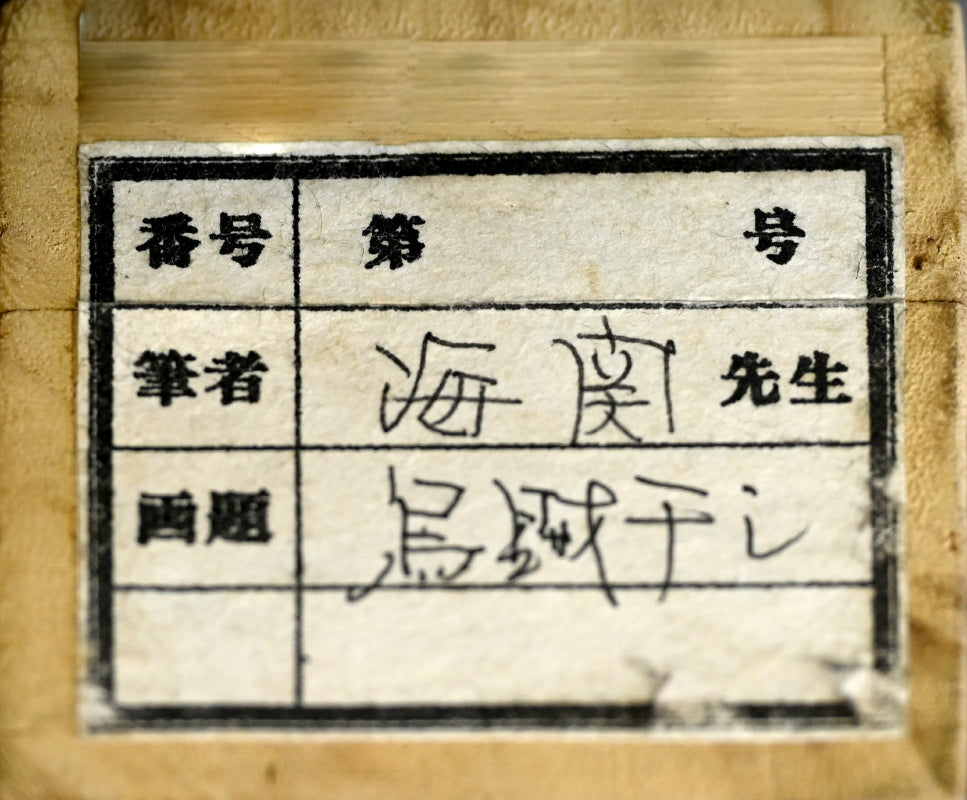 番号 第 号
筆者 海関 先生
画題 烏賊干し